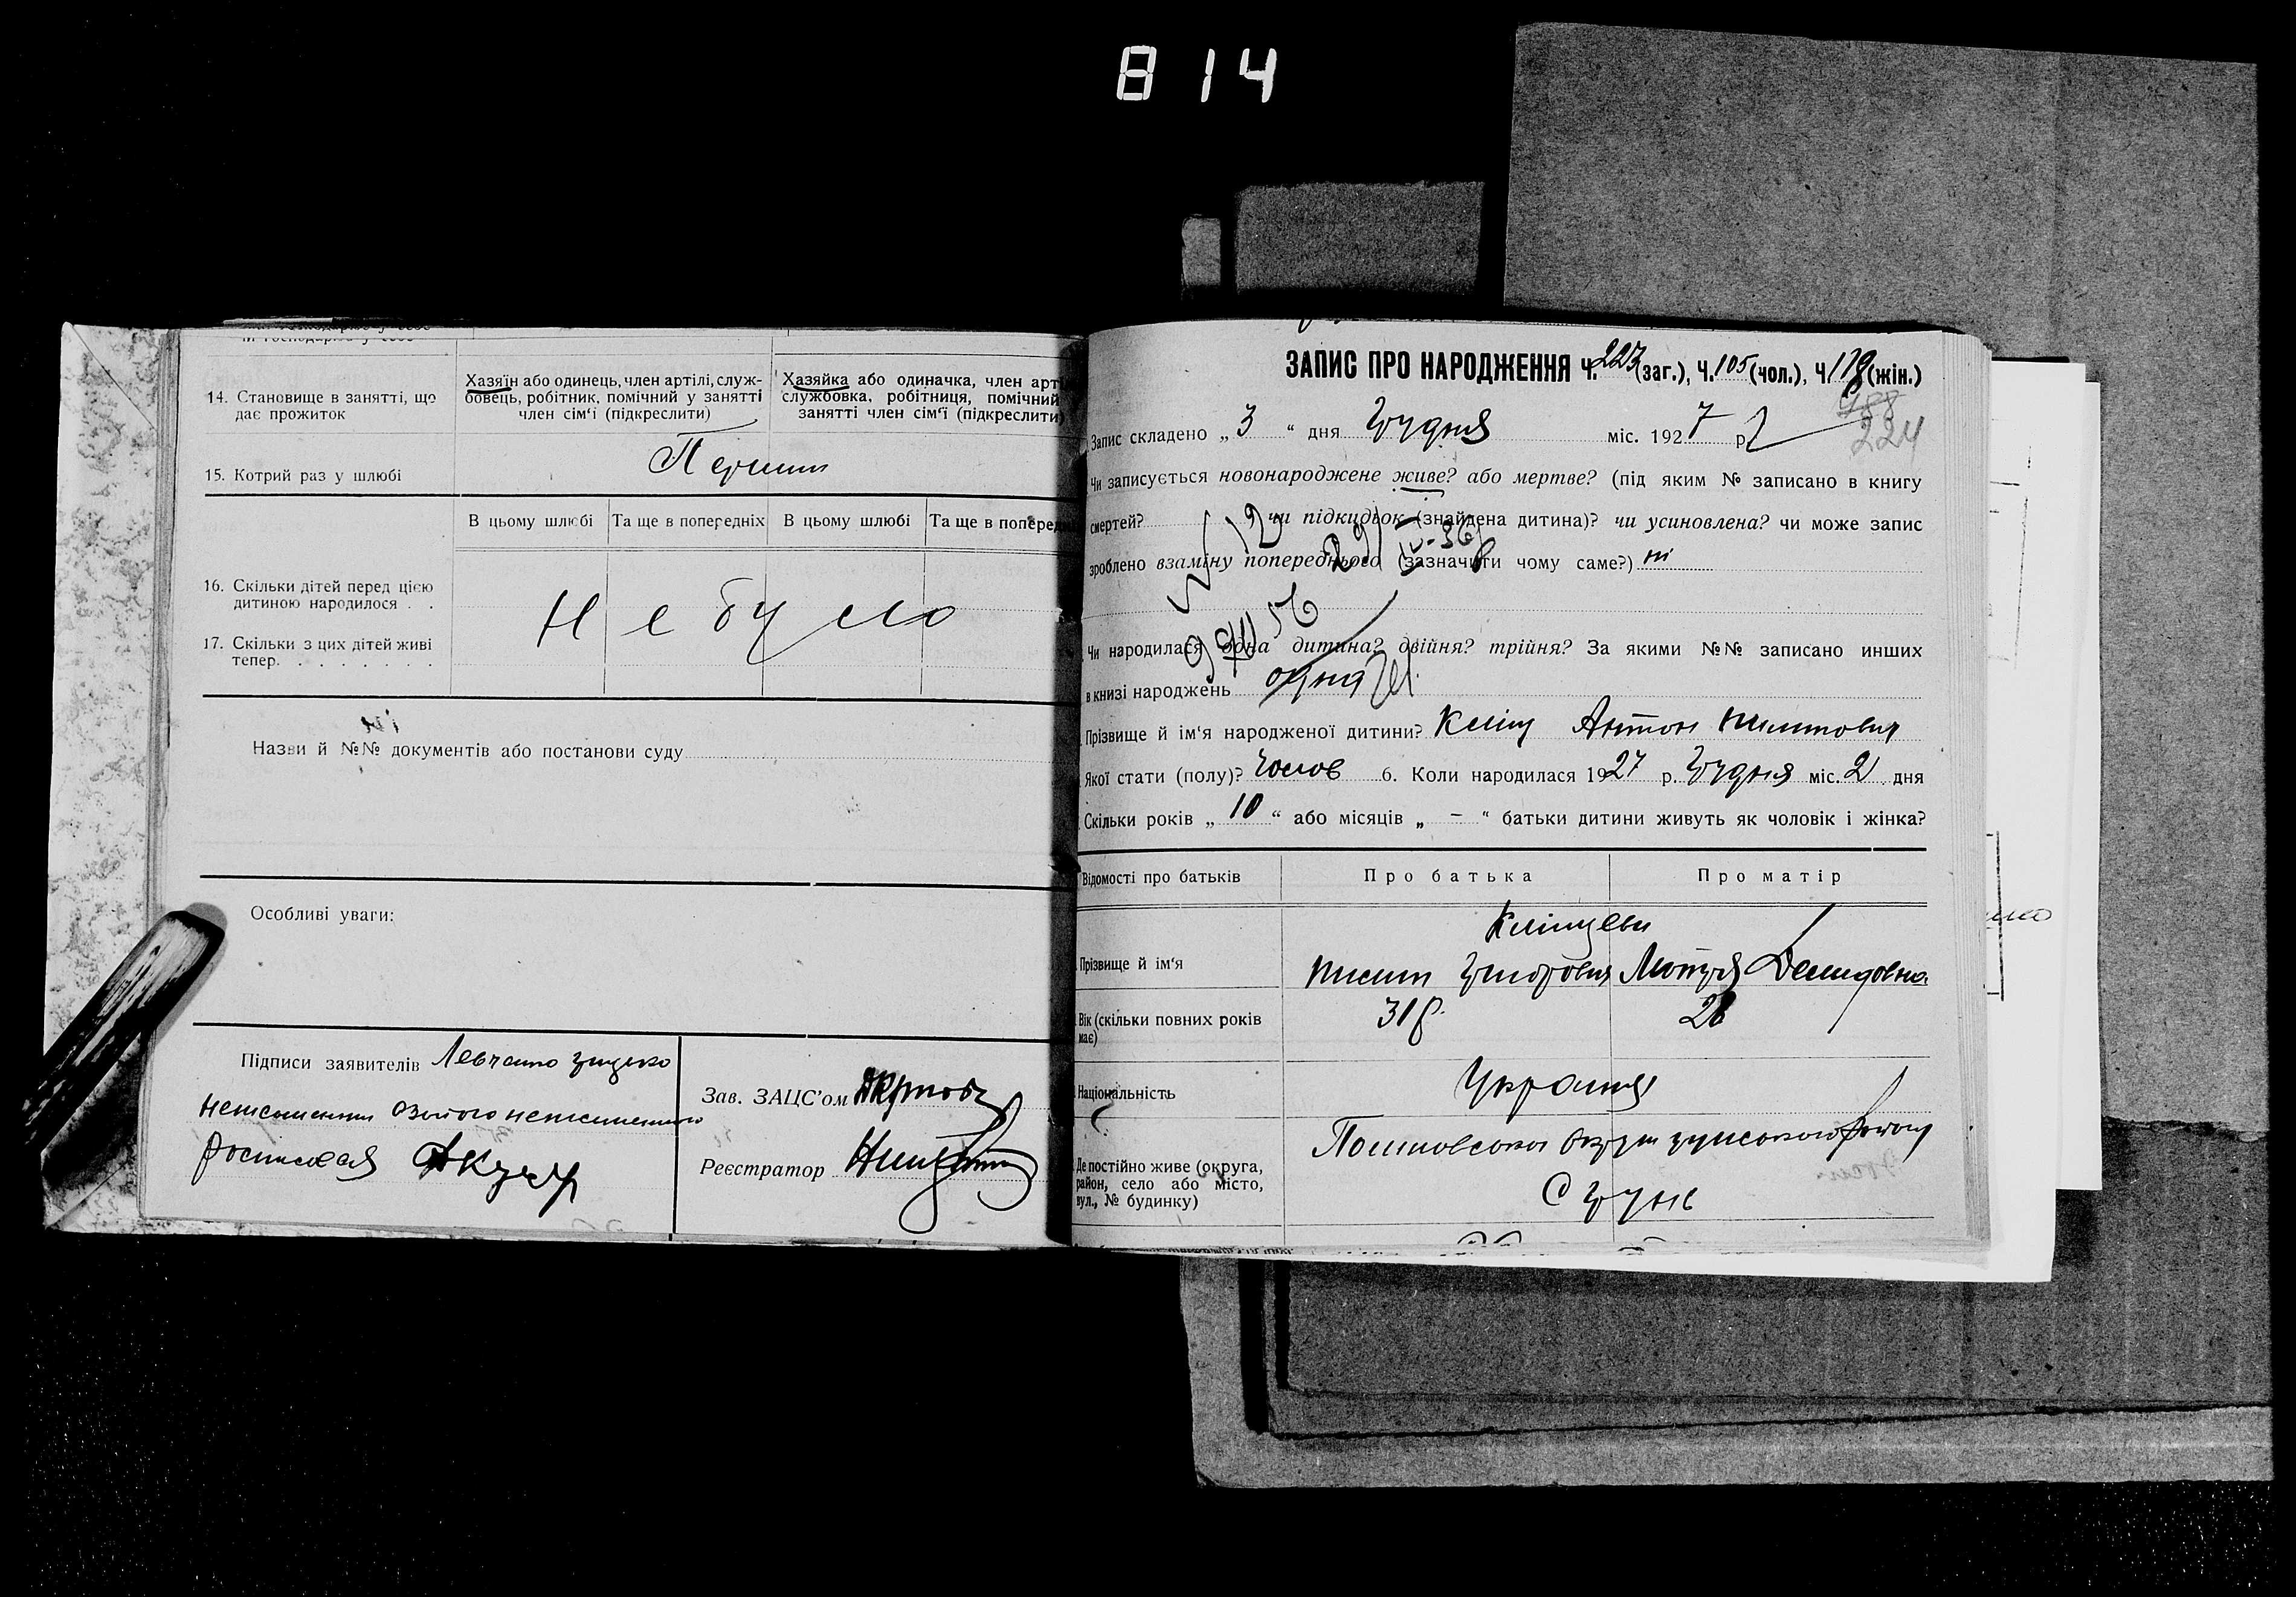 814
14. Становище в занятті, що дає прожиток
Хазяїн або одинець, член артілі, служ-
бовець, робітник, помічний у занятті
член сім'ї (підкреслити)
Хазяйка або одиначка, член арті
службовка, робітниця, помічний
занятті член сім'ї (підкреслити)
15. Котрий раз у шлюбі
Першии
В цьому шлюбі Та ще в попередніх В цьому шлюбі Та ще в поперед
16. Скільки дітей перед цією
дитиною народилося . .
Не було
17. Скільки з цих дітей живі
тепер. . . . . . . .
Назви й №№ документів або постанови суду
Особливі уваги:
Підписи заявителів
Зав. ЗАЦС'ом
Реєстратор
ЗАПИС ПРО НАРОДЖЕННЯ Ч. 223 (заг.), Ч. 105 (чол.), Ч. 118 (жін.)
224
Запис складено „ 3 “ дня Грудня міс. 1927 р.
Чи записується новонароджене живе? або мертве? (під яким № записано в книгу
смертей? чи підкидьок (знайдена дитина)? чи усиновлена? чи може запис
зроблено взаміну попереднього (зазначити чому саме?) ні
Чи народилася одна дитина? двійня? трійня? За якими №№ записано инших
в книзі народжень одна
Прізвище й ім'я народженої дитини? Кліщ Антон
Якої стати (полу)? Чолов 6. Коли народилася 1927 р. Грудня міс. 2 дня
Скільки років „ 10 “ або місяців „ – “ батьки дитини живуть як чоловік і жінка?
Відомості про батьків Про батька Про матір
Прізвище й ім'я
Григорович Мотря Демидовна
Вік (скільки повних років
має)
31 р. 28
Національність
Де постійно живе (округа,
район, село або місто,
вул., № будинку)
С Грунь